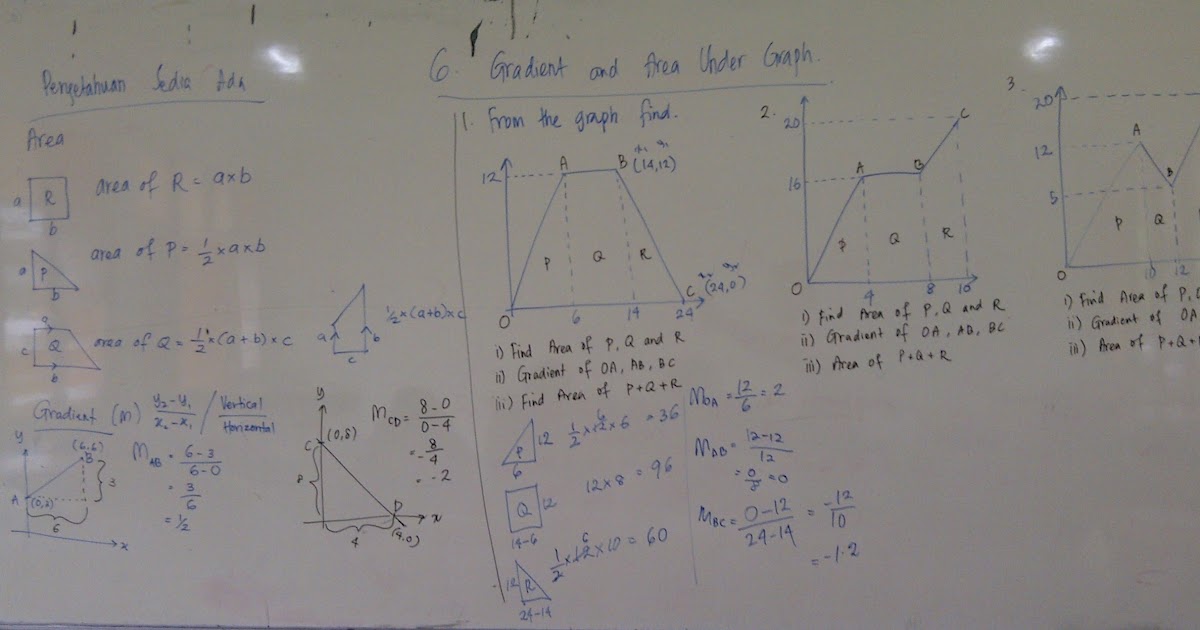 Pengetahuan Sedia Ada
Area
a R b
area of R = a×b
a P b
area of P = 1/2 × a × b
a Q c b
area of Q = 1/2 × (a + b) × c
a b c
1/2 × (a+b) × c
Gradient (m) y₂ - y₁ / x₂ - x₁ / Vertical / Horizontal
y
(6,6)
B
3
A
6
x
M_AB = 6-3 / 6-0
= 3/6
= 1/2
y
C (0,8)
D
x
4
M_CD = 8-0 / 0-4
= -8/4
= -2
6. Gradient and Area Under Graph.
1. From the graph find.
12 A B (14,12)
P Q R
C (24,0)
O 6 14 24
i) Find Area of P, Q and R
ii) Gradient of OA, AB, BC
iii) Find Area of P+Q+R
P 12 6
1/2 × 12 × 6 = 36
6
Q 12 14-6
12×8 = 96
R 12 24-14
1/2 × 12 × 10 = 60
6
M_OA = 12/6 = 2
M_AB = 12-12 / 12
= 0/8 = 0
M_BC = 0-12 / 24-14 = -12/10
= -1.2
2.
20 C
16 A B
P Q R
O 4 8 10
i) Find Area of P, Q and R
ii) Gradient of OA, AB, BC
iii) Area of P+Q+R
3.
20
12 A
5 B
P Q
O 10 12
i) Find Area of P,
ii) Gradient of OA
iii) Area of P+Q+